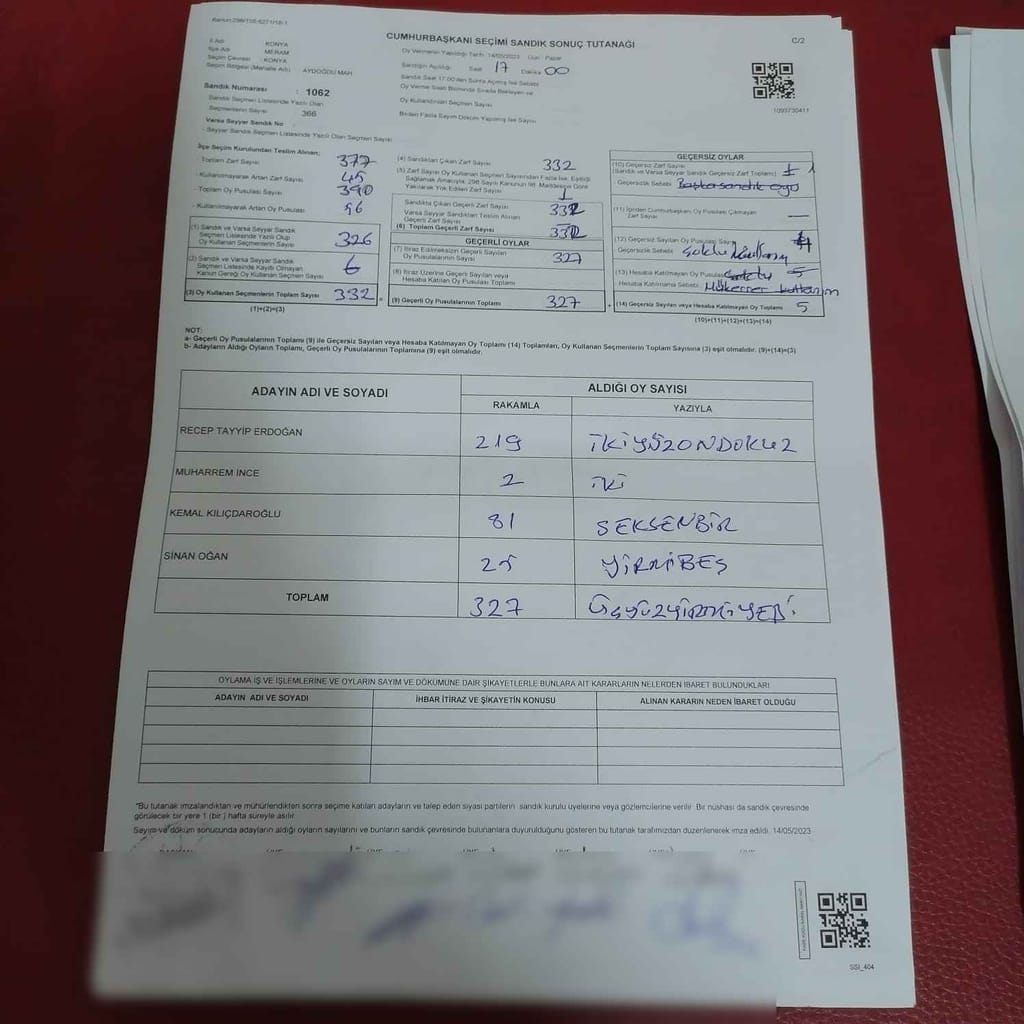 Kanun:298/105-6271/18-1
CUMHURBAŞKANI SEÇİMİ SANDIK SONUÇ TUTANAĞI
C/2
İl Adı : KONYA
İlçe Adı : MERAM
Seçim Çevresi : KONYA
Seçim Bölgesi (Mahalle Adı) : AYDOĞDU MAH
Oy Vermenin Yapıldığı Tarih :14/05/2023 Gün : Pazar
Sandığın Açıldığı Saat 17 Dakika 00
Sandık Saat 17:00'den Sonra Açılmış İse Sebebi
Oy Verme Saati Bitiminde Sırada Bekleyen ve
Oy Kullandırılan Seçmen Sayısı
Birden Fazla Sayım Döküm Yapılmış İse Sayısı
1093730411
Sandık Numarası : 1062
Sandık Seçmen Listesinde Yazılı Olan
Seçmenlerin Sayısı : 366
Varsa Seyyar Sandık No
- Seyyar Sandık Seçmen Listesinde Yazılı Olan Seçmen Sayısı
İlçe Seçim Kurulundan Teslim Alınan;
- Toplam Zarf Sayısı 377
- Kullanılmayarak Artan Zarf Sayısı 45
- Toplam Oy Pusulası Sayısı
- Kullanılmayarak Artan Oy Pusulası
(1) Sandık ve Varsa Seyyar Sandık
Seçmen Listesinde Yazılı Olup
Oy Kullanan Seçmenlerin Sayısı 326
(2) Sandık ve Varsa Seyyar Sandık
Seçmen Listesinde Kayıtlı Olmayan
Kanun Gereği Oy Kullanan Seçmen Sayısı 6
(3) Oy Kullanan Seçmenlerin Toplam Sayısı 332
(1)+(2)=(3)
(4) Sandıktan Çıkan Zarf Sayısı 332
(5) Zarf Sayısı Oy Kullanan Seçmen Sayısından Fazla İse, Eşitliği
Sağlamak Amacıyla, 298 Sayılı Kanunun 98. Maddesine Göre
Yakılarak Yok Edilen Zarf Sayısı
Sandıkta Çıkan Geçerli Zarf Sayısı
Varsa Seyyar Sandıktan Teslim Alınan
Geçerli Zarf Sayısı
(6) Toplam Geçerli Zarf Sayısı
GEÇERLİ OYLAR
(7) İtiraz Edilmeksizin Geçerli Sayılan
Oy Pusulasının Sayısı 327
(8) İtiraz Üzerine Geçerli Sayılan veya
Hesaba Katılan Oy Pusulası Toplamı
(9) Geçerli Oy Pusulalarının Toplamı 327
GEÇERSİZ OYLAR
(10) Geçersiz Zarf Sayısı
(Sandık ve Varsa Seyyar Sandık Geçersiz Zarf Toplamı) 1
Geçersizlik Sebebi Başka sandık oyu
(11) İçinden Cumhurbaşkanı Oy Pusulası Çıkmayan
Zarf Sayısı —
(12) Geçersiz Sayılan Oy Pusulası Sayısı
Geçersizlik Sebebi
(13) Hesaba Katılmayan Oy Pusulası 5
Hesaba Katılmama Sebebi Mükerrer kullanım
(14) Geçersiz Sayılan veya Hesaba Katılmayan Oy Toplamı 5
(10)+(11)+(12)+(13)=(14)
NOT:
a- Geçerli Oy Pusulalarının Toplamı (9) ile Geçersiz Sayılan veya Hesaba Katılmayan Oy Toplamı (14) Toplamları, Oy Kullanan Seçmenlerin Toplam Sayısına (3) eşit olmalıdır. (9)+(14)=(3)
b- Adayların Aldığı Oyların Toplamı, Geçerli Oy Pusulalarının Toplamına (9) eşit olmalıdır.
ADAYIN ADI VE SOYADI ALDIĞI OY SAYISI
RAKAMLA YAZIYLA
RECEP TAYYİP ERDOĞAN 219 İKİYÜZONDOKUZ
MUHARREM İNCE 2 İKİ
KEMAL KILIÇDAROĞLU 81 SEKSENBİR
SİNAN OĞAN 25 YİRMİBEŞ
TOPLAM 327 ÜÇYÜZYİRMİYEDİ
OYLAMA İŞ VE İŞLEMLERİNE VE OYLARIN SAYIM VE DÖKÜMÜNE DAİR ŞİKAYETLERLE BUNLARA AİT KARARLARIN NELERDEN İBARET BULUNDUKLARI
ADAYIN ADI VE SOYADI İHBAR İTİRAZ VE ŞİKAYETİN KONUSU ALINAN KARARIN NEDEN İBARET OLDUĞU
"Bu tutanak imzalandıktan ve mühürlendikten sonra seçime katılan adayların ve talep eden siyasi partilerin sandık kurulu üyelerine veya gözlemcilerine verilir. Bir nüshası da sandık çevresinde
görülecek bir yere 1 (bir) hafta süreyle asılır
Sayım ve döküm sonucunda adayların aldığı oyların sayılarını ve bunların sandık çevresinde bulunanlara duyurulduğunu gösteren bu tutanak tarafımızdan düzenlenerek imza edildi. 14/05/2023
SSI_404